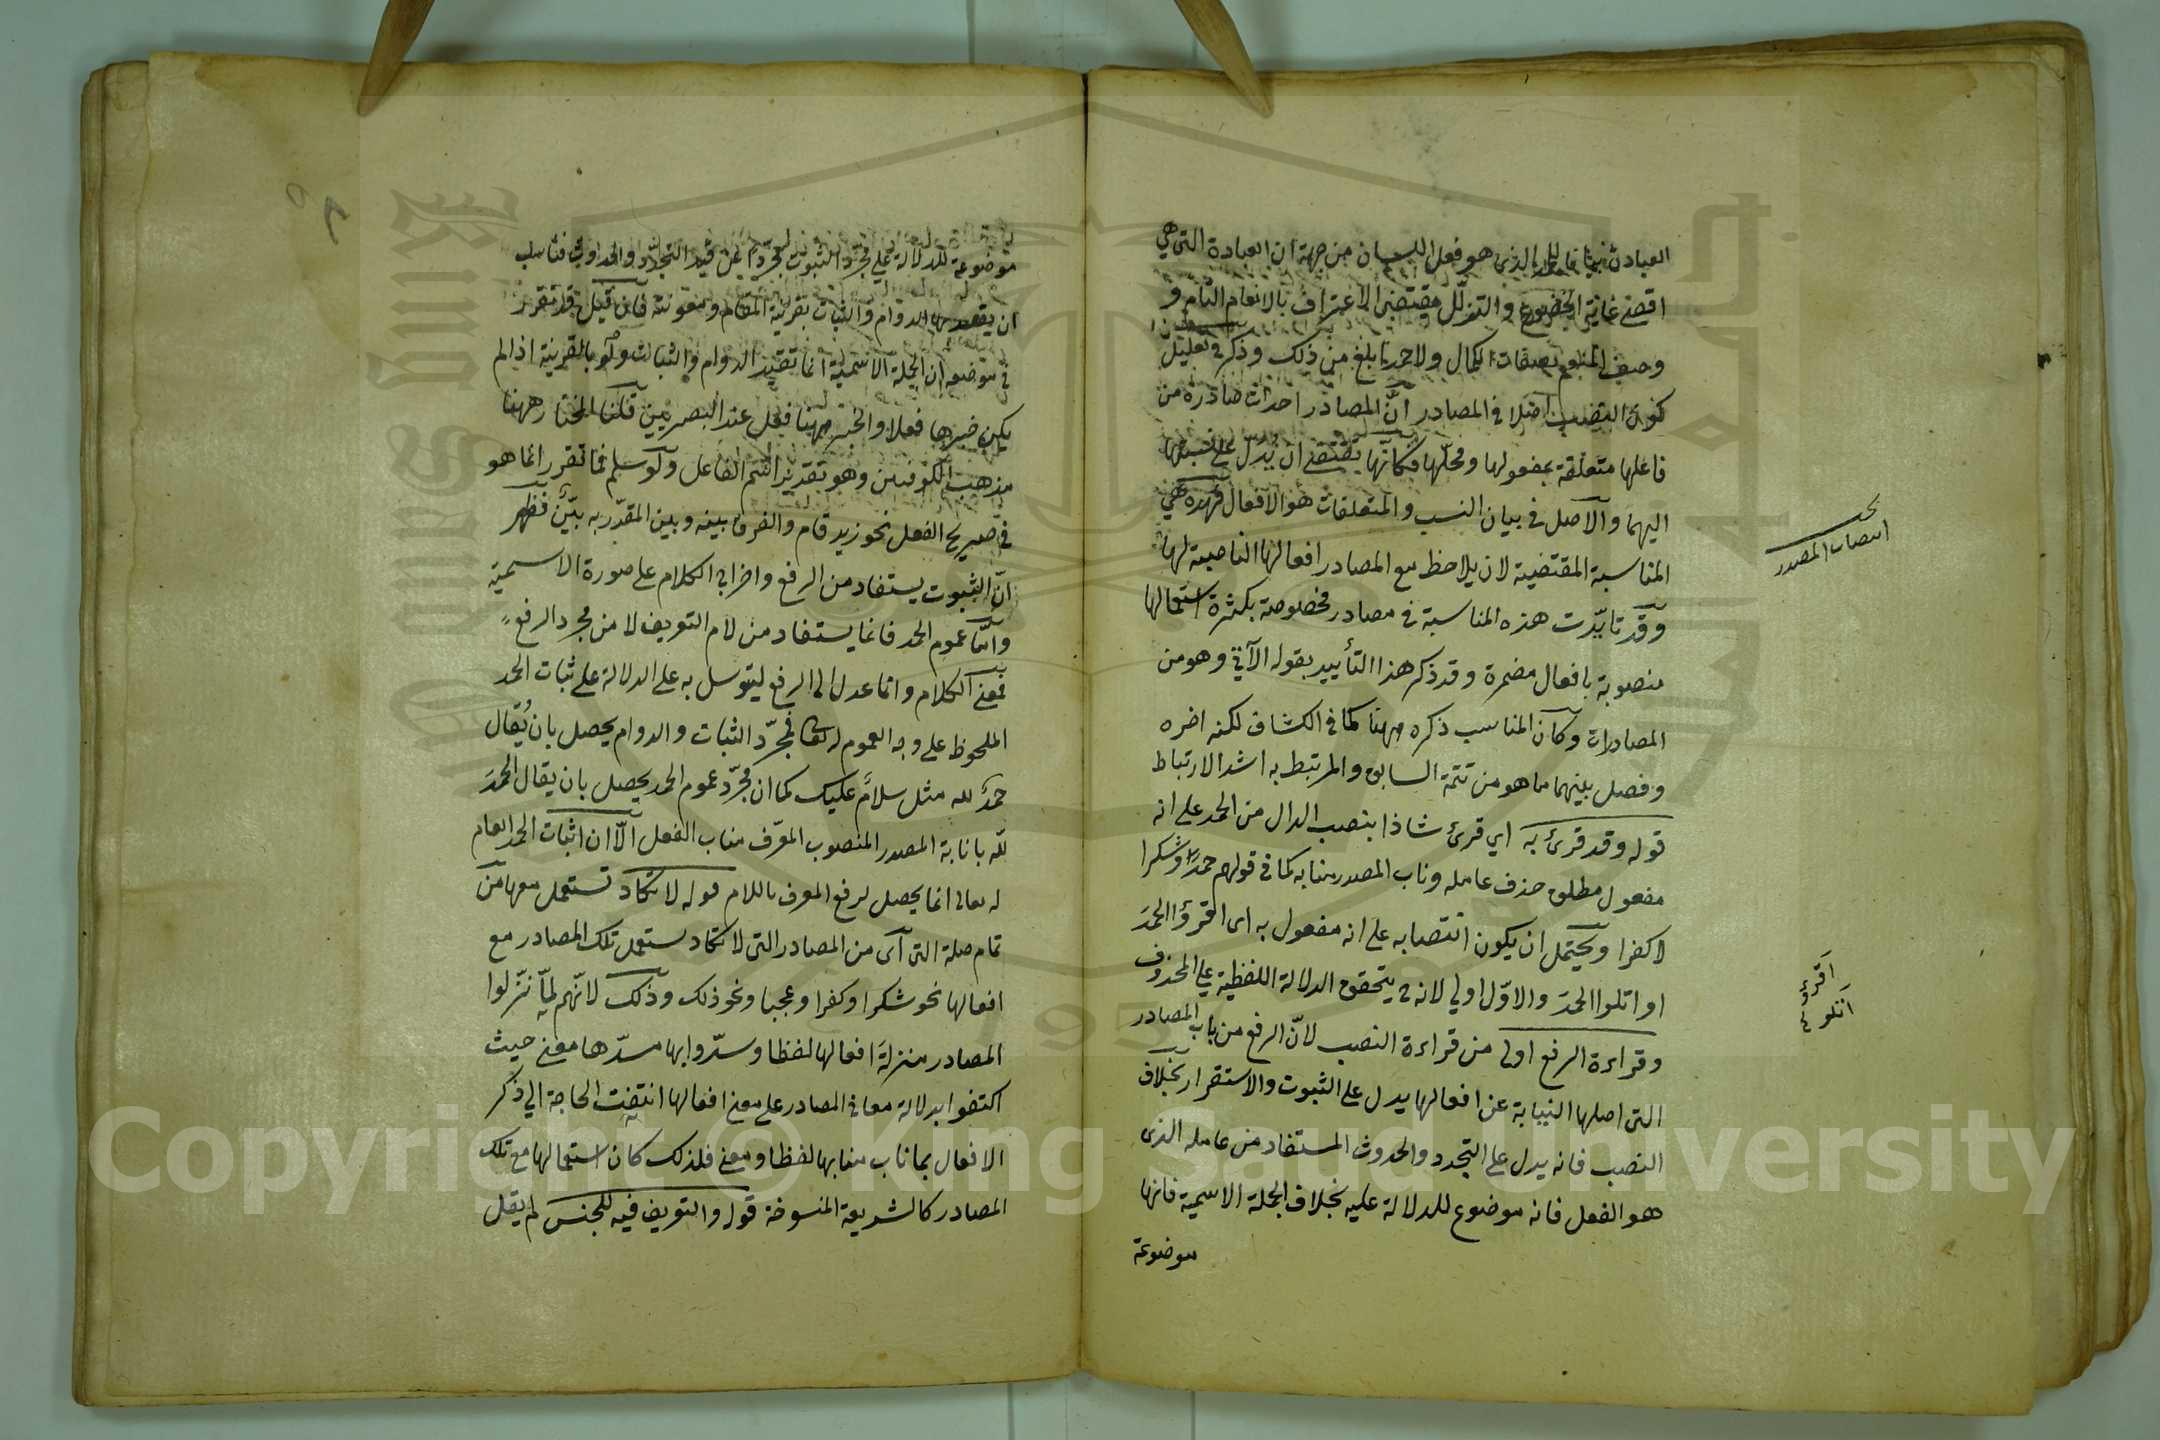 العبادة فيما الذي هو فعل اللسان من جهة ان العبادة التي هي
اقصى غاية الخضوع والتذلل مقتضى الاعتراف بالانعام التام و
وصف المنعم بصفات الكمال ولا حمد ابلغ من ذلك وذكر في تعليل
كون النصب اصلا في المصادر انّ المصادر احداث صادرة من
فاعلها متعلقة بمفعولها ومحلّها فكانّها يقتضى ان يدلّ على نسبتها
اليهما والاصل في بيان النسب والمتعلقات هو الافعال فهذه هي
المناسبة المقتضية لان يلاحظ مع المصادر افعالها الناصبة لها
وقد تايّدت هذه المناسبة في مصادر مخصوصة بكثرة استعمالها
منصوبة بافعال مضمرة وقد ذكر هذا التأييد بقوله الآتي وهو من
المصادرات وكان المناسب ذكره ههنا كما في الكشاف لكنه اخره
وفصل بينهما مما هو من تتمة السابق والمرتبط به اشد الارتباط
قوله وقد قرئ به اي قرئ شاذا بنصب الدال من الحمد على انه
مفعول مطلق حذف عامله وناب المصدر منابه كما في قولهم حمدا وشكرا
لا كفرا ويحتمل ان يكون انتصابه على انه مفعول به اى اقرؤا الحمدَ
او اتلوا الحمدَ والاوّل اولي لانه ح يتحقق الدلالة اللفظية على المحذوف
وقراءة الرفع اولى من قراءة النصب لانّ الرفع من باب المصادر
التى اصلها النيابة عن افعالها يدل على الثبوت والاستقرار بخلاف
النصب فانه يدل على التجدد والحدوث المستفاد من عامله الذى
هو الفعل فانه موضوع للدلالة عليه بخلاف الجملة الاسمية فانها
موضوعة
انتصاب المصدر
اقرؤ
اتلو
موضوعة للدلالة على مجرّد الثبوت مجرّدا عن قيد التجدّد والحدوث فناسب
ان يقصد بها الدوام والثبات بقرينة المقام ومعونته فان قيل قد تقرر
في موضعه ان الجملة الاسمية انما تفيد الدوام والثبات ولو بالقرينة اذا لم
يكن خبرها فعلا والخبر ههنا فعل عند البصريين قلنا المختار ههنا
مذهب الكوفيين وهو تقدير اسم الفاعل ولو سلم فما تقرر انما هو
في صريح الفعل نحو زيد قام والفرق بينه وبين المقدّر به بيّن فظهر
انّ الثبوت يستفاد من الرفع واخراج الكلام على صورة الاسمية
وامّا عموم الحمد فانما يستفاد من لام التعريف لا من مجرد الرفع
فمعنى الكلام وانما عدل الى الرفع ليتوسل به على الدلالة على ثبات الحمد
الملحوظ على وجه العموم له تعالى فمجرّد الثبات والدوام يحصل بان يُقال
حمدٌ لله مثل سلامٌ عليك كما ان مجرّد عموم الحمد يحصل بان يقال الحمدَ
للّه بانابة المصدر المنصوب المعرّف مناب الفعل الّا ان اثبات الحمد العام
له تعالى انما يحصل لرفع المعرف باللام قوله لا تكاد تستعمل معها من
تمام صلة التى اى من المصادر التى لا تكاد يستعمل تلك المصادر مع
افعالها نحو شكرا وكفرا وعجبا ونحو ذلك وذلك لانّهم لمّا نزّلوا
المصادر منزلة افعالها لفظا وسدّوا بها مسدّها معنى حيث
اكتفوا بدلالة معانى المصادر على معنى افعالها انتفت الحاجة الي ذكر
الافعال بما ناب منابها لفظا ومعنى فلذلك كان استعمالها مع تلك
المصادر كالشريعة المنسوخة قوله والتعريف فيه للجنس لم يقل
Copyright © King Saud University
1957